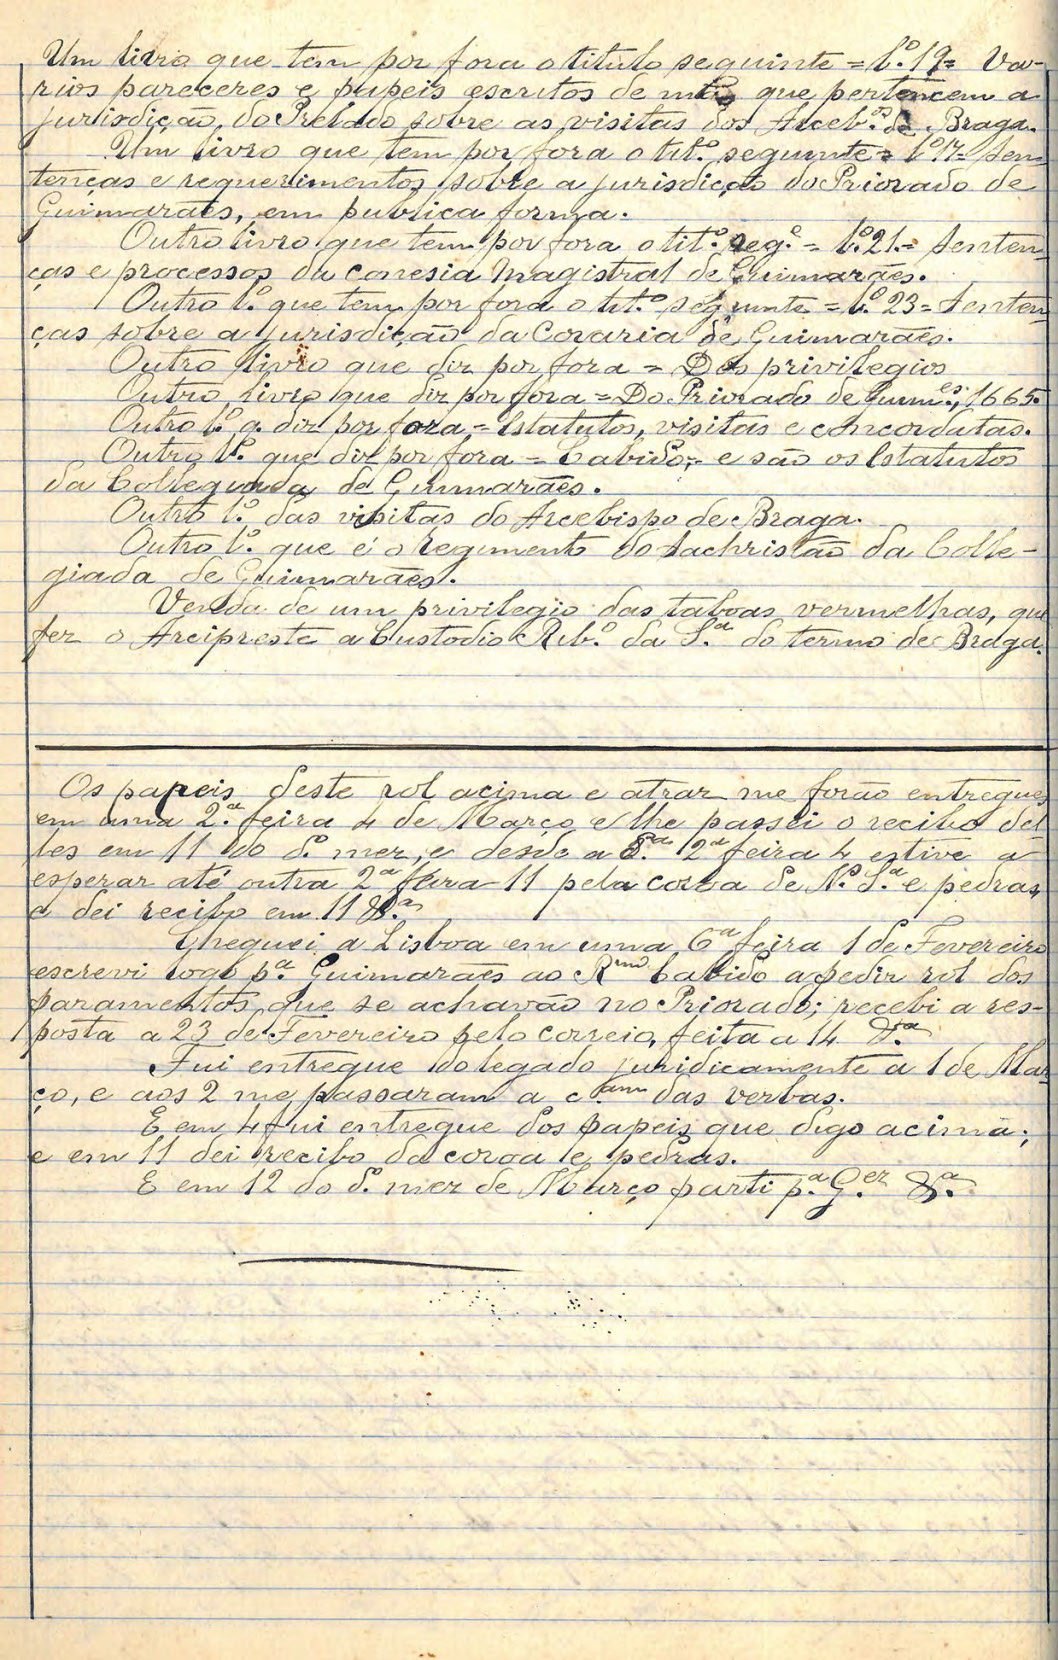 Um livro que tem por fora o titulo seguinte = l.º 19 = Va-
rios pareceres e papeis escritos de mão que pertencem a
jurisdição do Prelado sobre as visitas dos Arceb.ºs de Braga.
Um livro que tem por fora o tit.º seguinte = l.º 17 = Sen
tenças e requerimentos sobre a jurisdição do Priorado de
Guimarães, em publica forma.
Outro livro que tem por fora o tit.º seg.e = l.º 21. = Senten
ças e processos da conesia Magistral de Guimarães.
Outro l.º que tem por fora o tit.º seguinte = l.º 23 = Senten
ças sobre a jurisdição da Coraria de Guimarães.
Outro livro que diz por fora = Dos privilegios
Outro livro que diz por fora = Do Priorado de Guim.es, 1665.
Outro l.º q. diz por fora = Estatutos, visitas e concordatas.
Outro l.º que diz por fora = Cabido, = e são os Estatutos
da Collegiada de Guimarães.
Outro l.º das visitas do Arcebispo de Braga.
Outro l.º que é o Regimento do Sachristão da Colle-
giada de Guimarães.
Venda de um privilegio das taboas vermelhas, que
fez o Arcipreste a Custodio Rib.º da S.a do termo de Braga.
Os papeis deste rol acima e atraz me forão entregues
em uma 2.a feira 4 de Março e lhe passei o recibo del
les em 11 do d.º mez, e desde a d.a 2a feira 4 estive a
esperar até outra 2a feira 11 pela coroa de N. S.a e pedras,
e dei recibo em 11 &.a
Cheguei a Lisboa em uma 6a feira 1 de Fevereiro
escrevi logo p.a Guimarães ao Rmo Cabido a pedir rol dos
paramentos que se achavão no Priorado; recebi a res-
posta a 23 de Fevereiro pelo correio, feita a 14 &.a
Fui entregue do legado juridicamente a 1 de Mar
ço, e aos 2 me passaram a c.am das verbas.
E em 4 fui entregue dos papeis que digo acima;
e em 11 dei recibo da coroa e pedras.
E em 12 do d.º mez de Março parti p.a G.es &.a